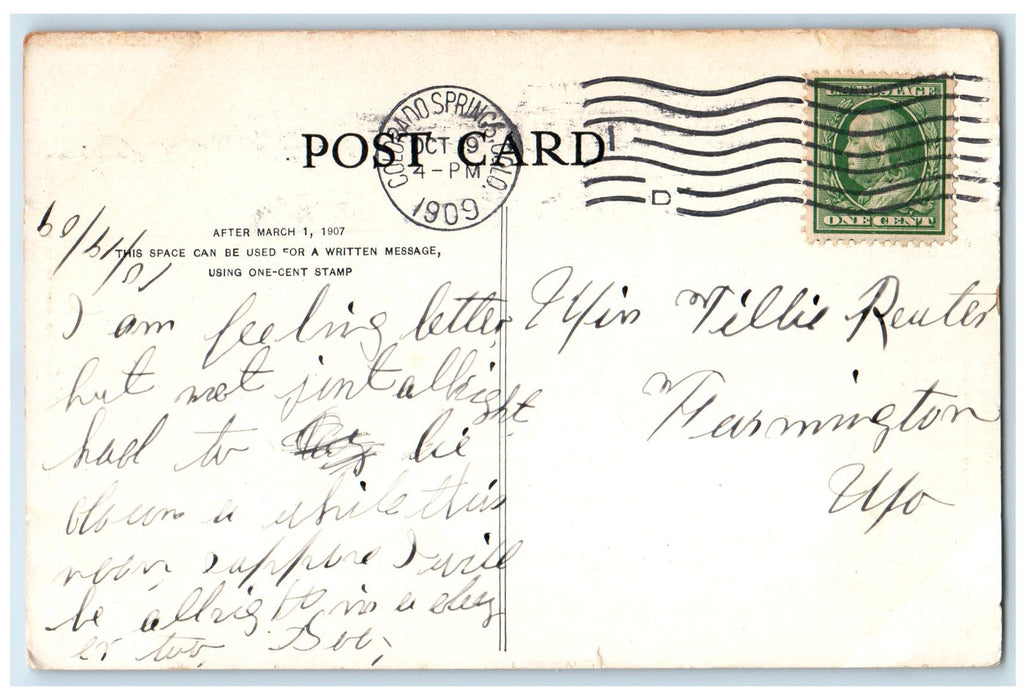 COLORADO SPRINGS, COLO.
OCT 19
4-PM
1909
D
U.S. POSTAGE
ONE CENT
POST CARD
AFTER MARCH 1, 1907
THIS SPACE CAN BE USED FOR A WRITTEN MESSAGE,
USING ONE-CENT STAMP
10/19/09
I am feeling better
but not just allright
had to lie
down a while this
noon, suppose I will
be allright in a day
er two.
Miss Tillie Reuter
Farmington
Mo